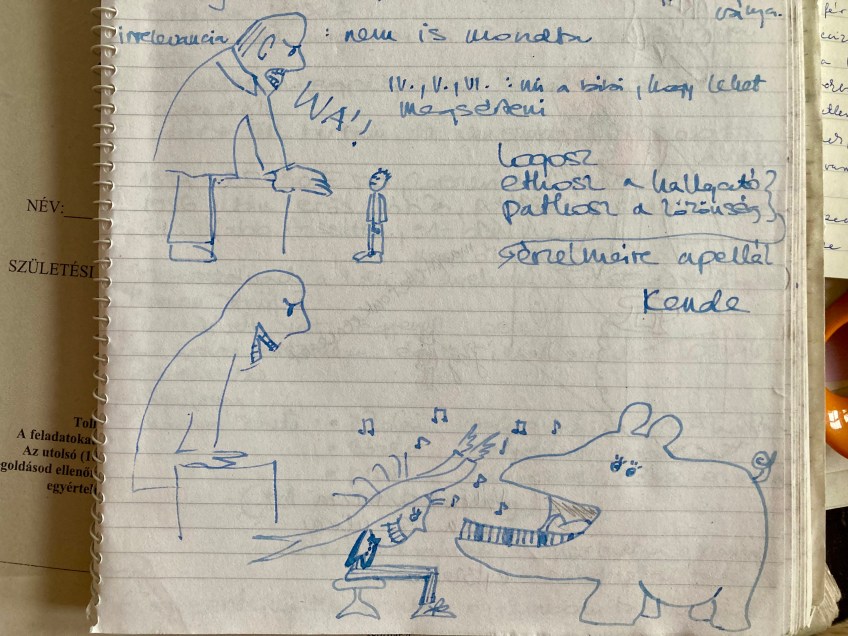 ványa.
irrelevancia : nem is mondta
IV., V., VI. : mi a bibi, hogy lehet
megsérteni
WA!,
logosz
ethosz a hallgató
pathosz a közönség
érzelmeire apellál
Kende
NÉV:
SZÜLETÉSI
Toll
A feladatoka
Az utolsó (1
goldásod ellenőr
egyértel